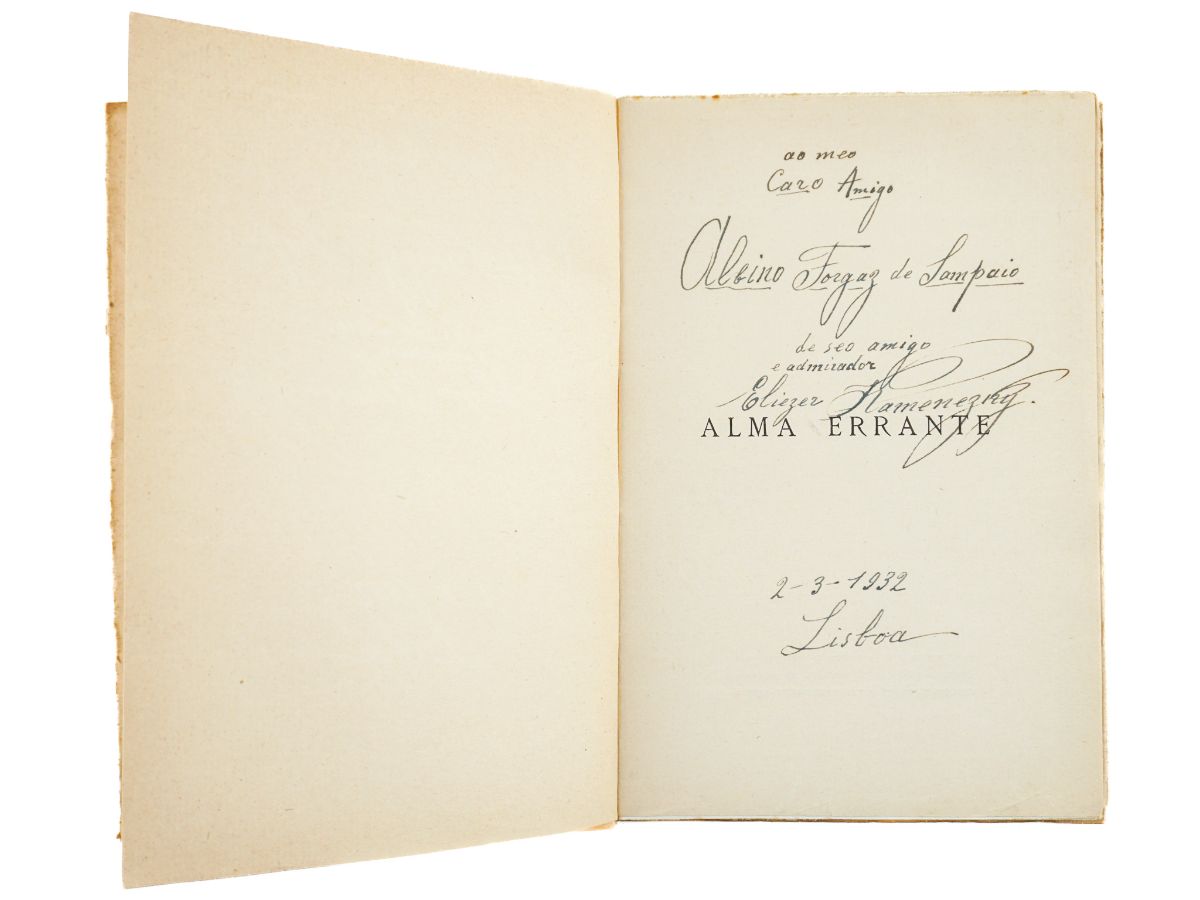 ao meo
Caro Amigo
Albino Forgaz de Sampaio
de seo amigo
e admirador
Eliezer Kamenezky.
ALMA ERRANTE
2-3-1932
Lisboa